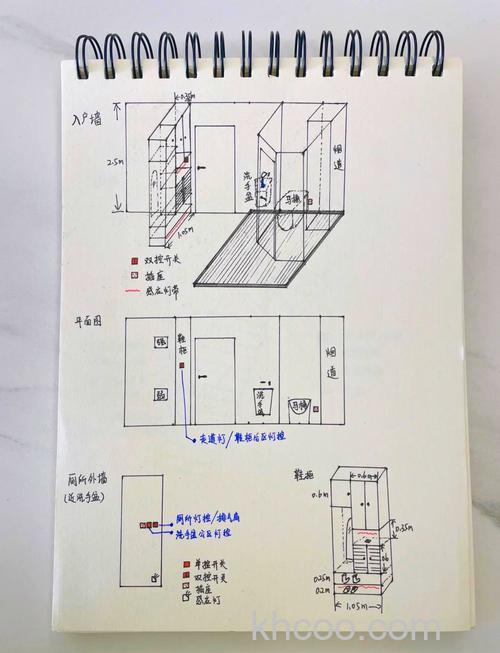 入户墙
0.35m
2.5m
洗手盆
马桶
烟道
1.05m
双控开关
插座
感应灯带
平面图
鞋柜
强
弱
洗手盆
马桶
烟道
夹道灯/鞋柜后区灯控
厕所外墙
(近洗手盆)
厕所灯控/排气扇
洗手盆公区灯控
单控开关
双控开关
插座
感应灯
鞋柜
0.6m
0.6m
0.35m
0.25m
0.2m
1.05m
khcoo.com